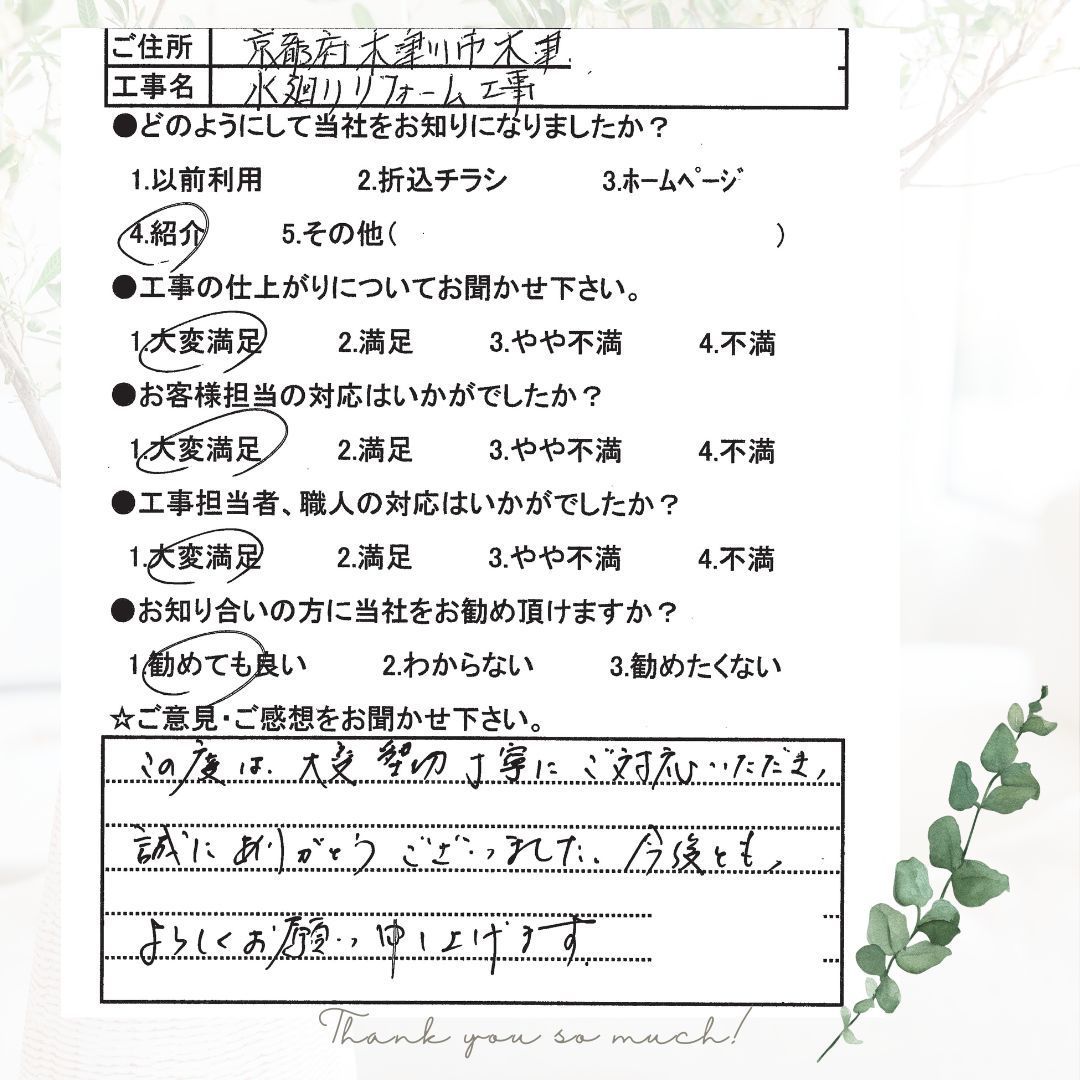 ご住所 京都府木津川市木津
工事名 水廻りリフォーム工事
●どのようにして当社をお知りになりましたか？
1.以前利用 2.折込チラシ 3.ホームページ
4.紹介 5.その他( )
●工事の仕上がりについてお聞かせ下さい。
1.大変満足 2.満足 3.やや不満 4.不満
●お客様担当の対応はいかがでしたか？
1.大変満足 2.満足 3.やや不満 4.不満
●工事担当者、職人の対応はいかがでしたか？
1.大変満足 2.満足 3.やや不満 4.不満
●お知り合いの方に当社をお勧め頂けますか？
1.勧めても良い 2.わからない 3.勧めたくない
☆ご意見・ご感想をお聞かせ下さい。
この度は、大変 親切丁寧に ご対応いただき、
誠にありがとう ございました。今後とも、
よろしくお願い申し上げます。
Thank you so much!